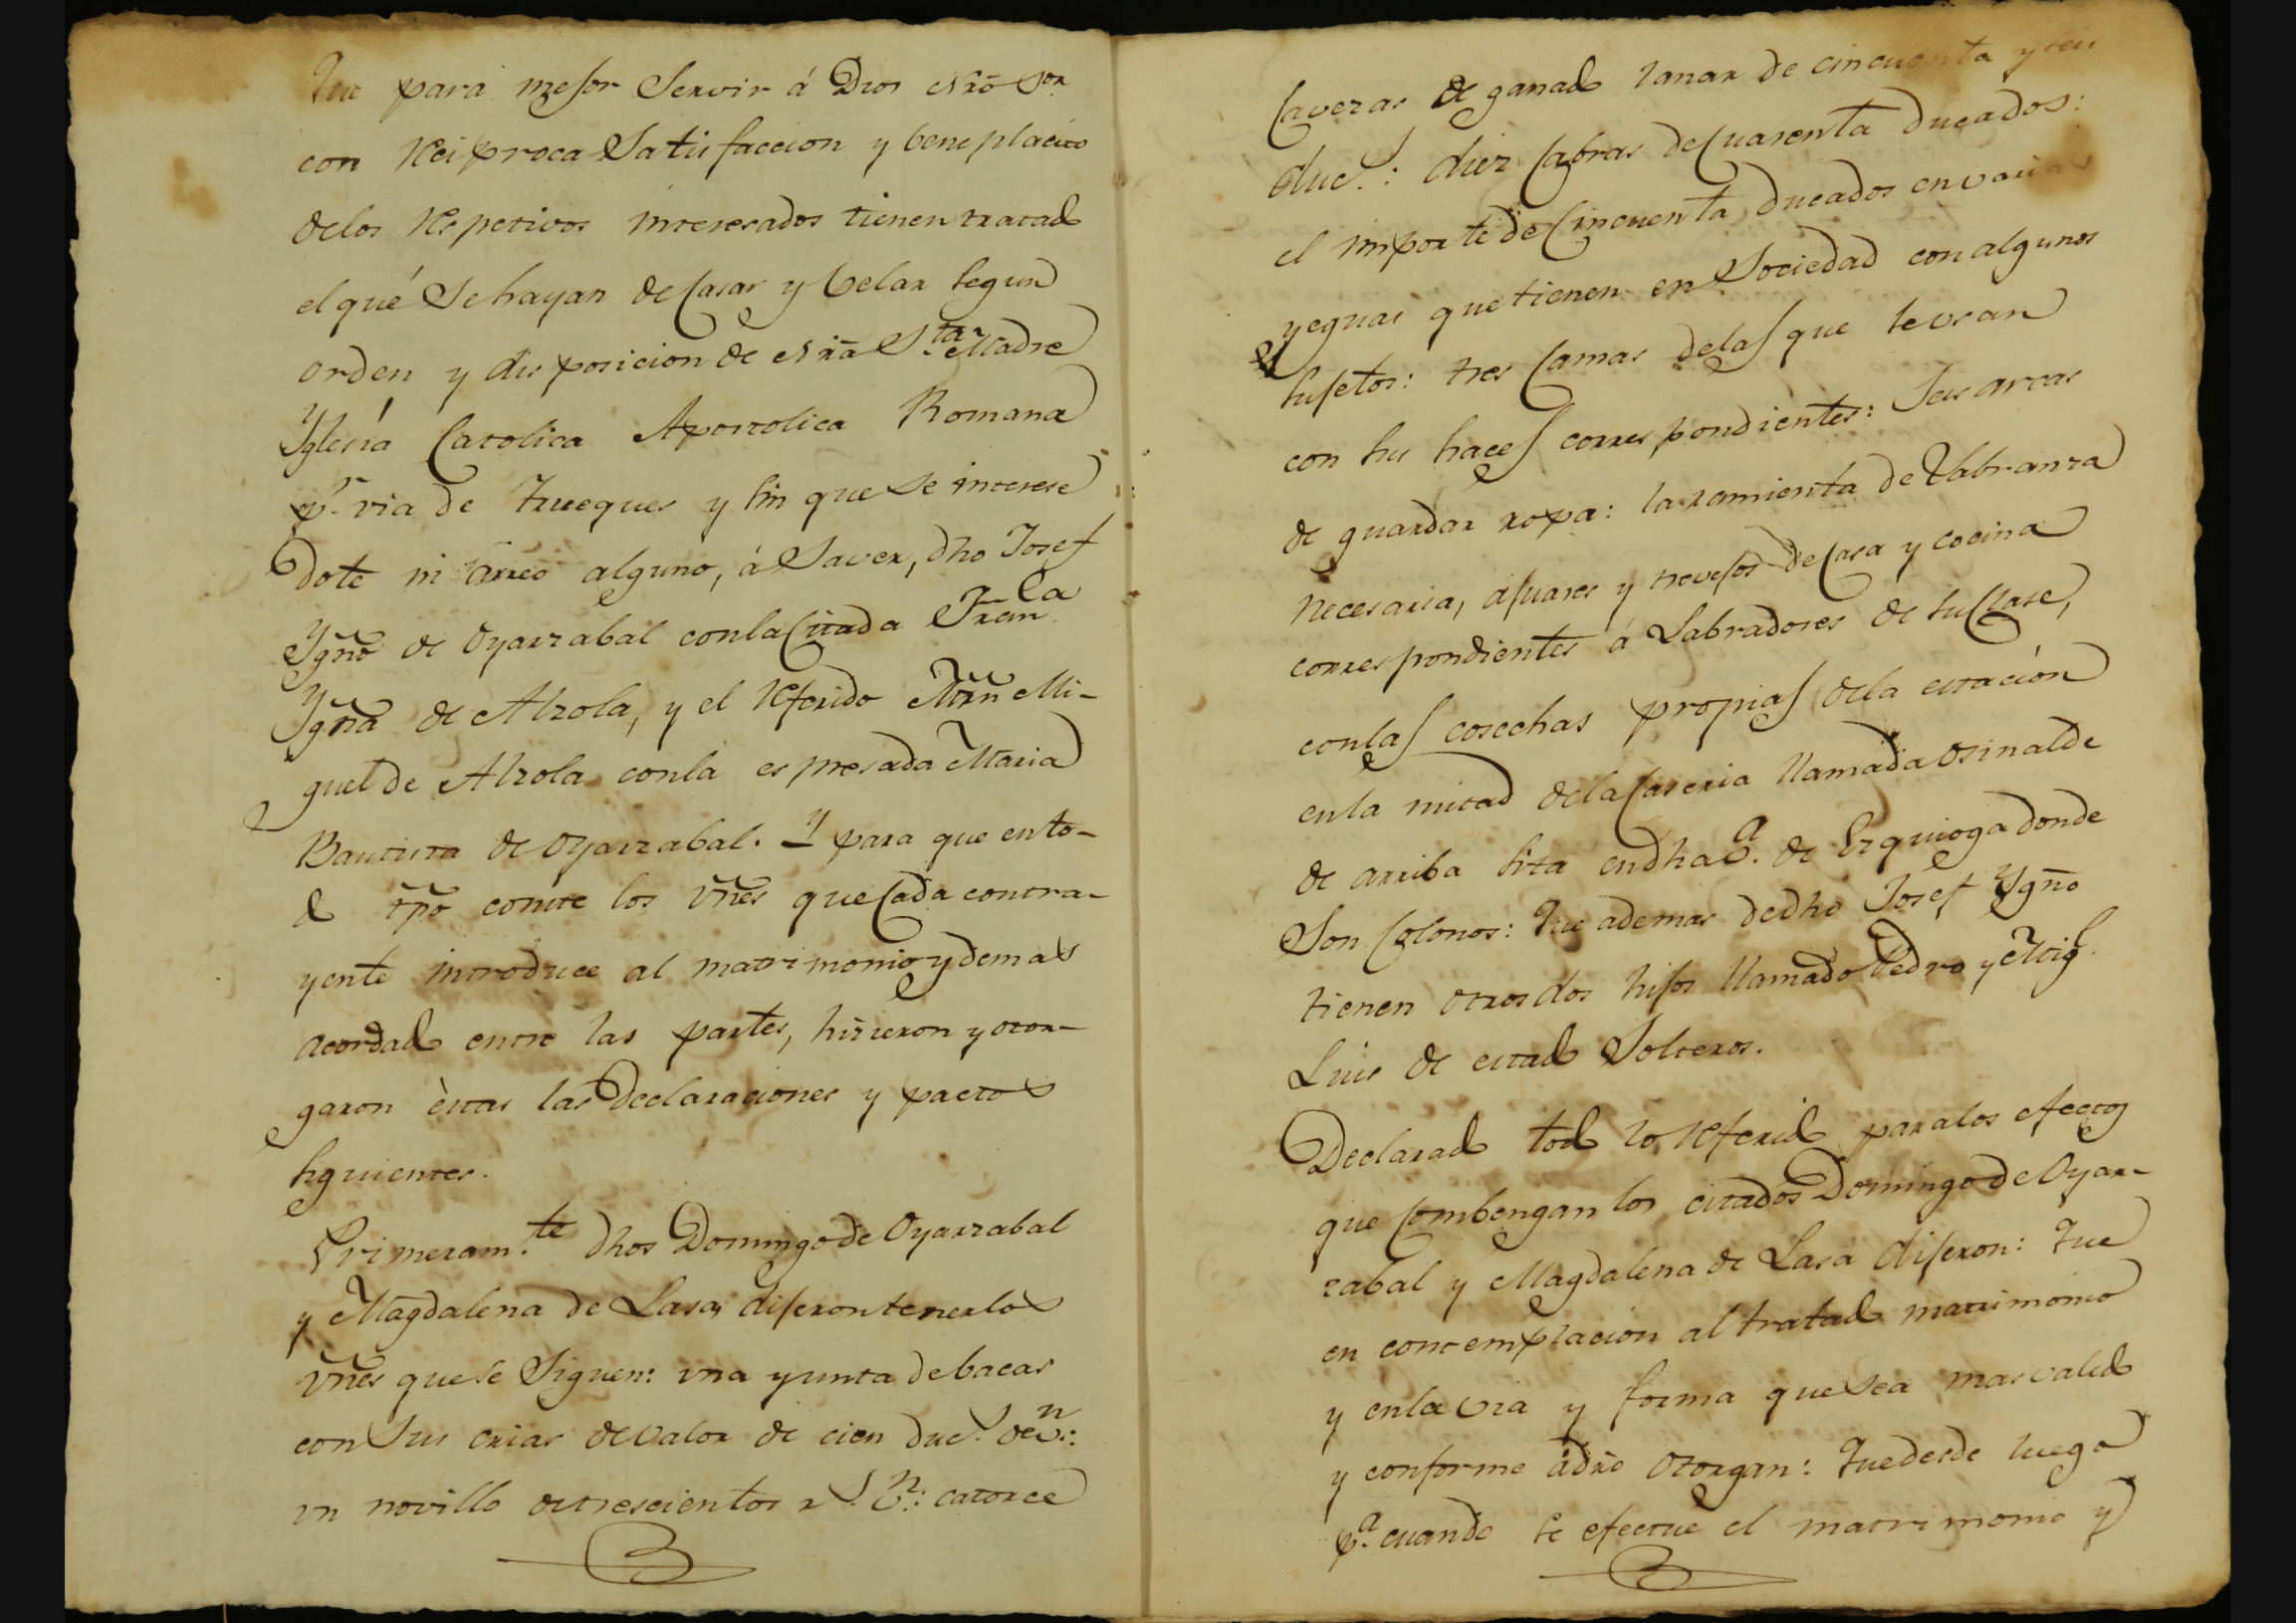 Que para mejor Servir á Dios Nrõ Sor.
con Reiproca Satisfaccion y beneplacito
delos Respetivos interesados tienen tratado
el qué Se hayan de Casar y Velar segun
orden y disposicion de Nrã Sta. Madre
Yglesia Catolica Apostolica Romana
pr. via de trueques y sin que se interese
dote ni arreo alguno, á Saver, dho Josef
Ygnõ de Oyarzabal con la Citada Franca.
Ygnã de Alzola, y el Referido Mrñ Mi-
guel de Alzola con la espresada Maria
Bautista de Oyarzabal. Y para que en to-
do tpõ conste los vñes que Cada contra-
yente introduce al matrimonio y demas
acordado entre las partes, hizieron y otor-
garon èstas las Declaraciones y pactos
siguientes.
Primeramte. dhos Domingo de Oyarzabal
y Magdalena de Lasa, dijeron tener los
vñes que se Siguen: una yunta de bacas
con Sus crias de valor de cien ducs. de vn.:
un novillo de trescientos rs. vn.: catorce
Caveras de ganado lanar de cincuenta y seis
ducs.: diez Cabras de Cuarenta ducados:
el importe de Cincuenta ducados en varias
yeguas que tienen en Sociedad con algunos
sujetos: tres Camas de las que se usan
con sus haces correspondientes: Seis arcas
de guardar ropa: la ramienta de labranza
necesaria, ajuares y trevejos de Casa y cocina
correspondientes á Labradores de su Clase,
con las cosechas propias de la estación
en la mitad de la Caseria llamada Osinalde
de arriba sita en dha va. de Ezquioga donde
Son Colonos: Que ademas de dho Josef Ygnõ
tienen otros dos hijos llamado Pedro y Migl.
Luis de estado Solteros.
Declarado todo lo Referido para los efectos
que Combengan los citados Domingo de Oyar-
zabal y Magdalena de Lasa dijeron: Que
en contemplacion al tratado matrimonio
y en la via y forma que Sea mas valido
y conforme á drõ otorgan: Que desde luego
pa. cuando se efectue el matrimonio y